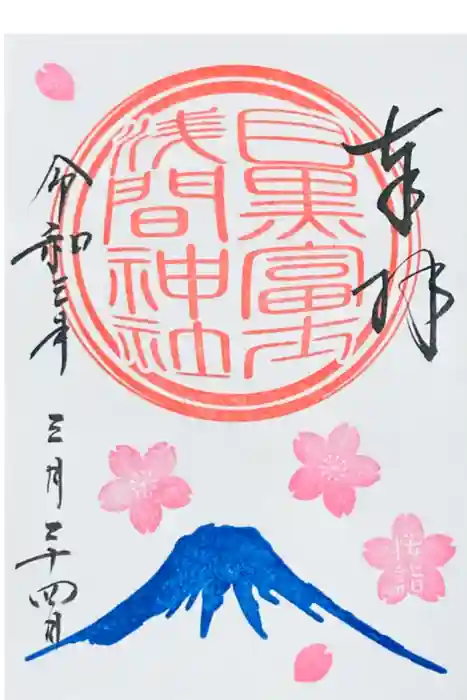 奉拝
目黒富士
浅間神社
令和三年
三月二十四日